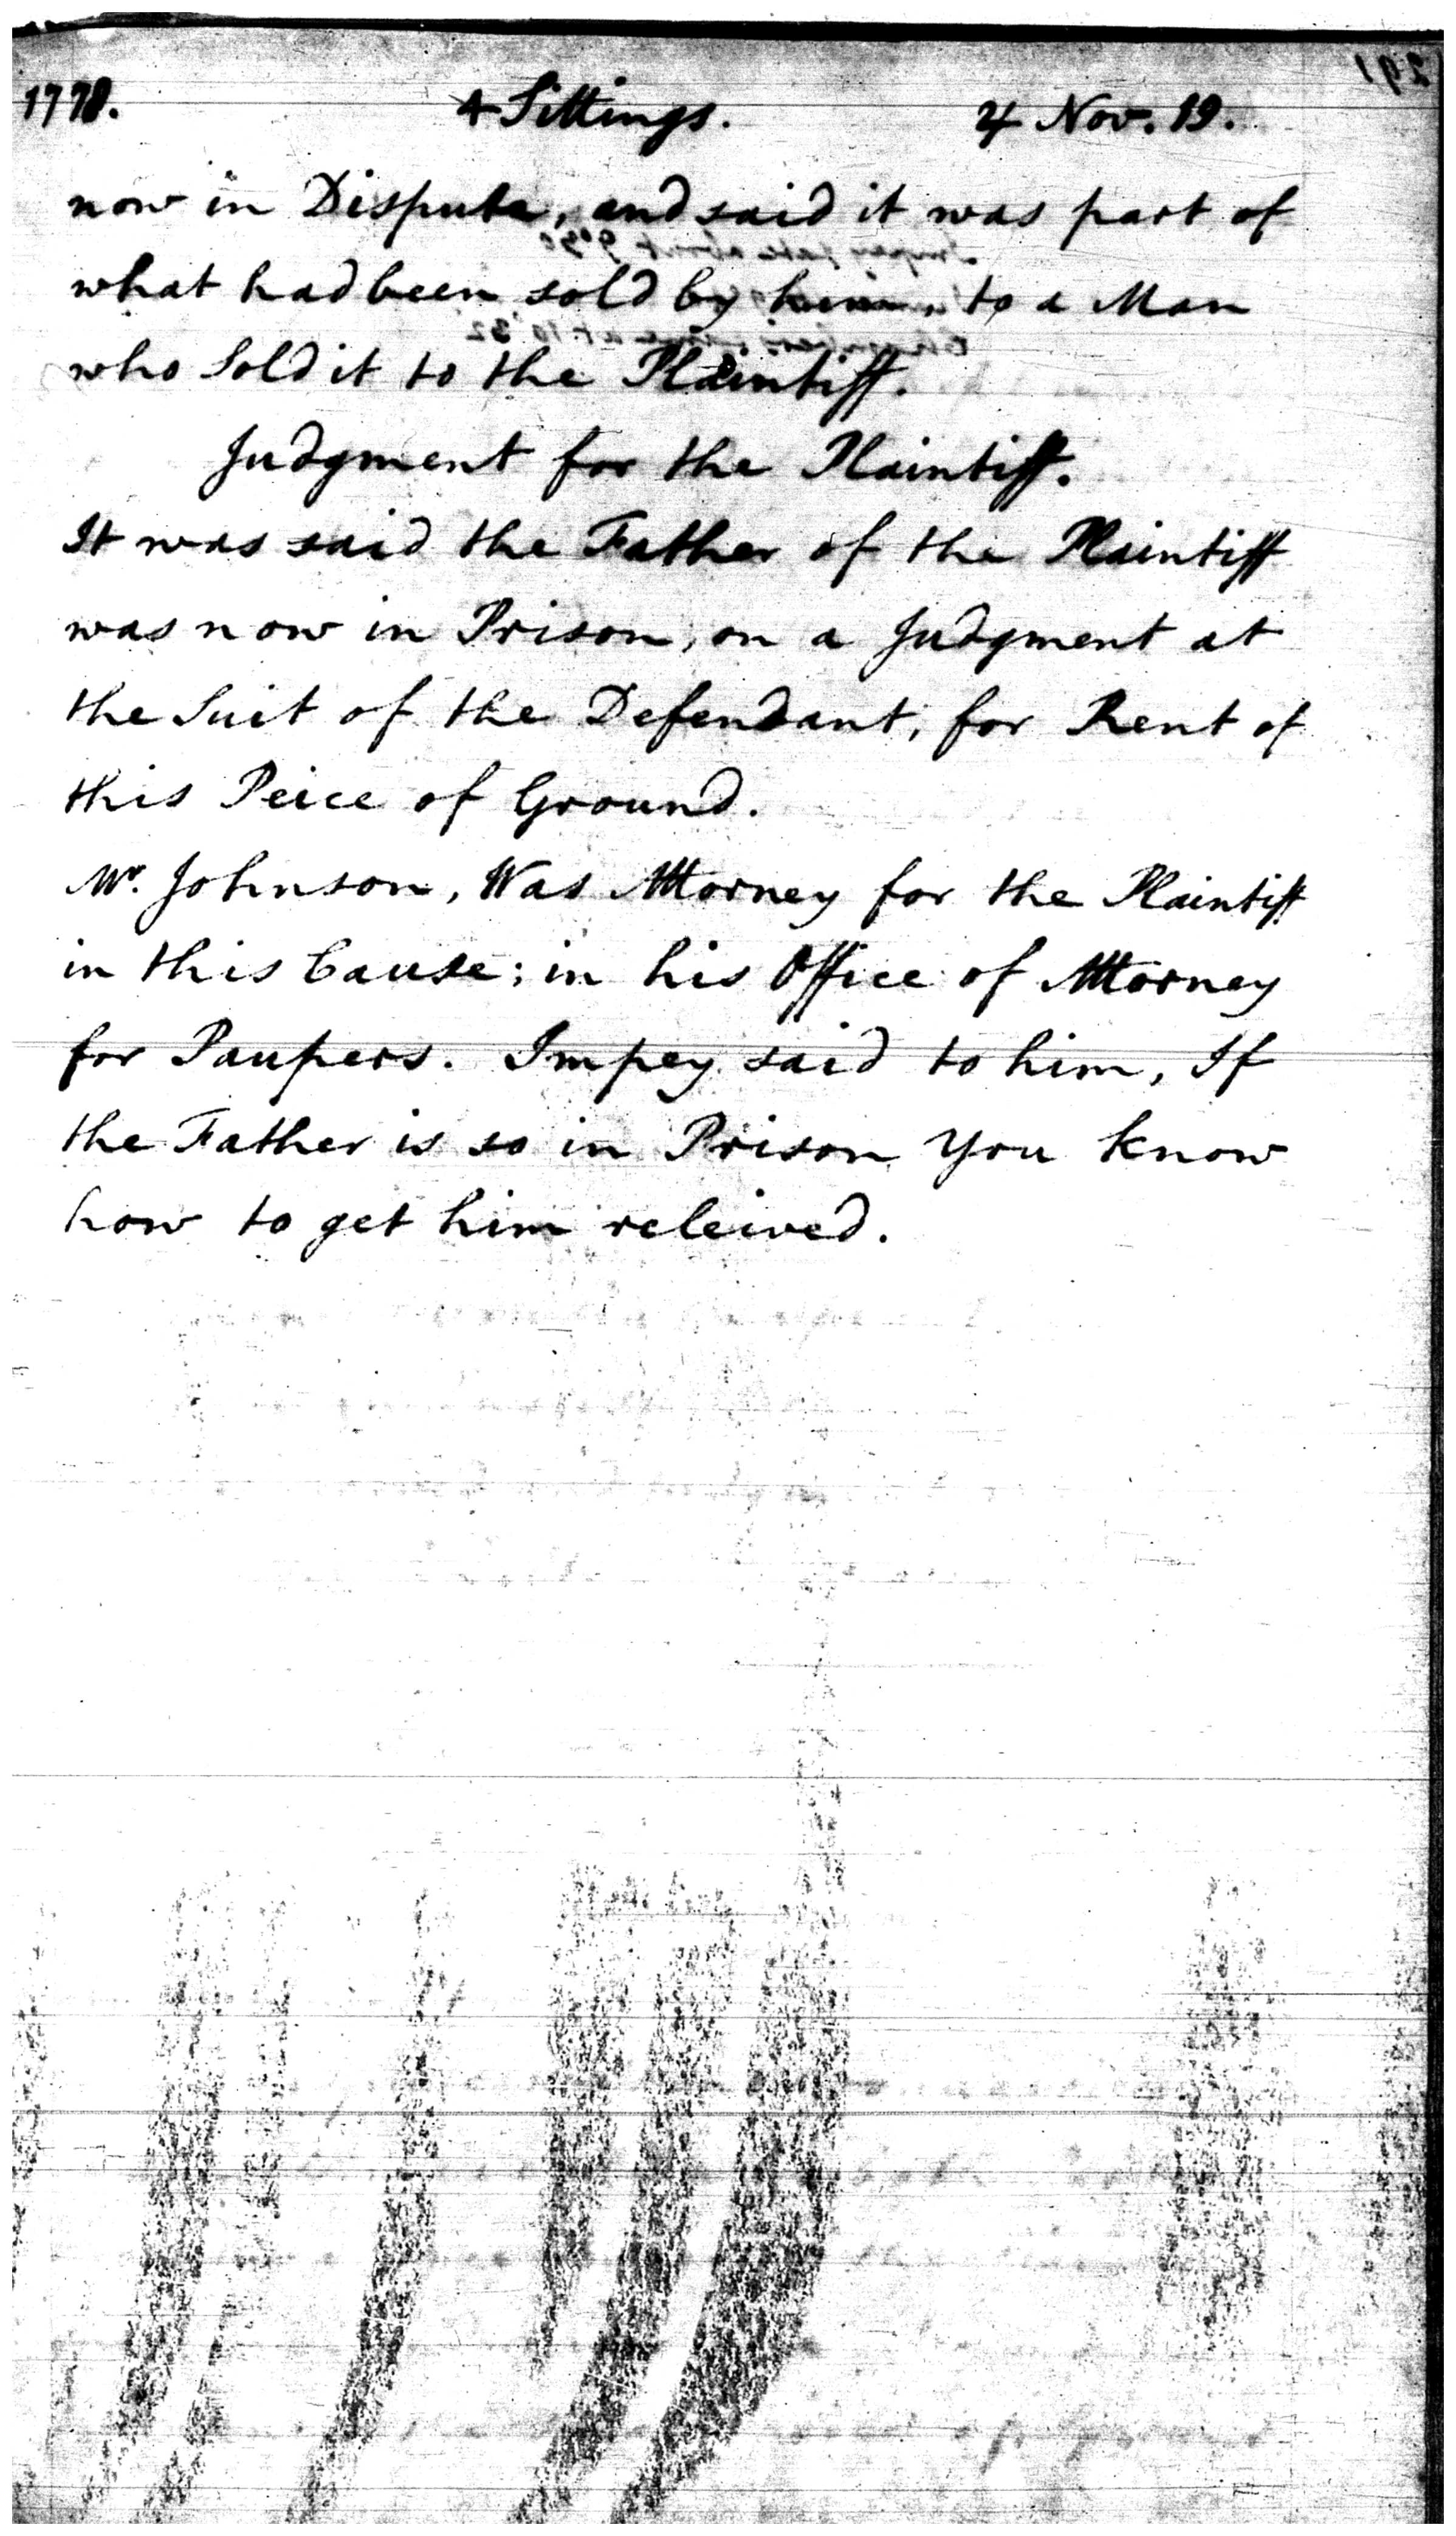 1778. 4 Sittings. ♃ Nov. 19.
now in Dispute, and said it was part of
what had been sold by him, to a Man
who Sold it to the Plaintiff.
Judgment for the Plaintiff.
It was said the Father of the Plaintiff
was now in Prison, on a Judgment at
the Suit of the Defendant, for Rent of
this Peice of Ground.
Mr. Johnson, Was Attorney for the Plaintiff
in this Cause; in his Office of Attorney
for Paupers. Impey said to him, If
the Father is so in Prison you know
how to get him releived.